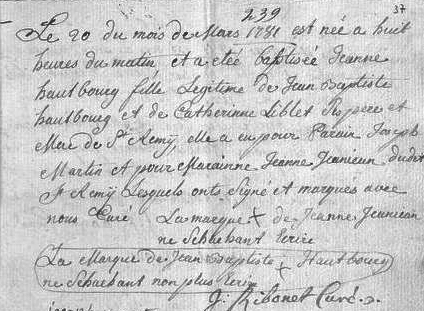 239
37
Le 20 du mois de Mars 1781 est née a huit
heures du matin et a eté baptisée Jeanne
hautbourg fille Legitime de Jean Baptiste
hautbourg et de Catherinne Liblet Ses pere et
Mere de St Remÿ, elle a eu pour Parain Joseph
Martin et pour Marainne Jeanne Jeanieun dudit
St Remÿ Lesquels onts Signé et marqués avec
nous Curé. La marque X de Jeanne Jeunieun
ne Schachant Ecrire
La Marque de Jean Baptiste + Hautbourg
ne Schachant non plus Ecrire
J: Ribonet Curé